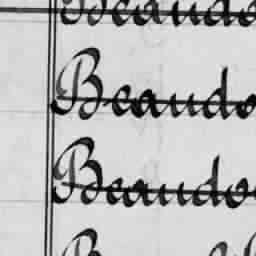 Beaudo
Beaudo
Beaudo